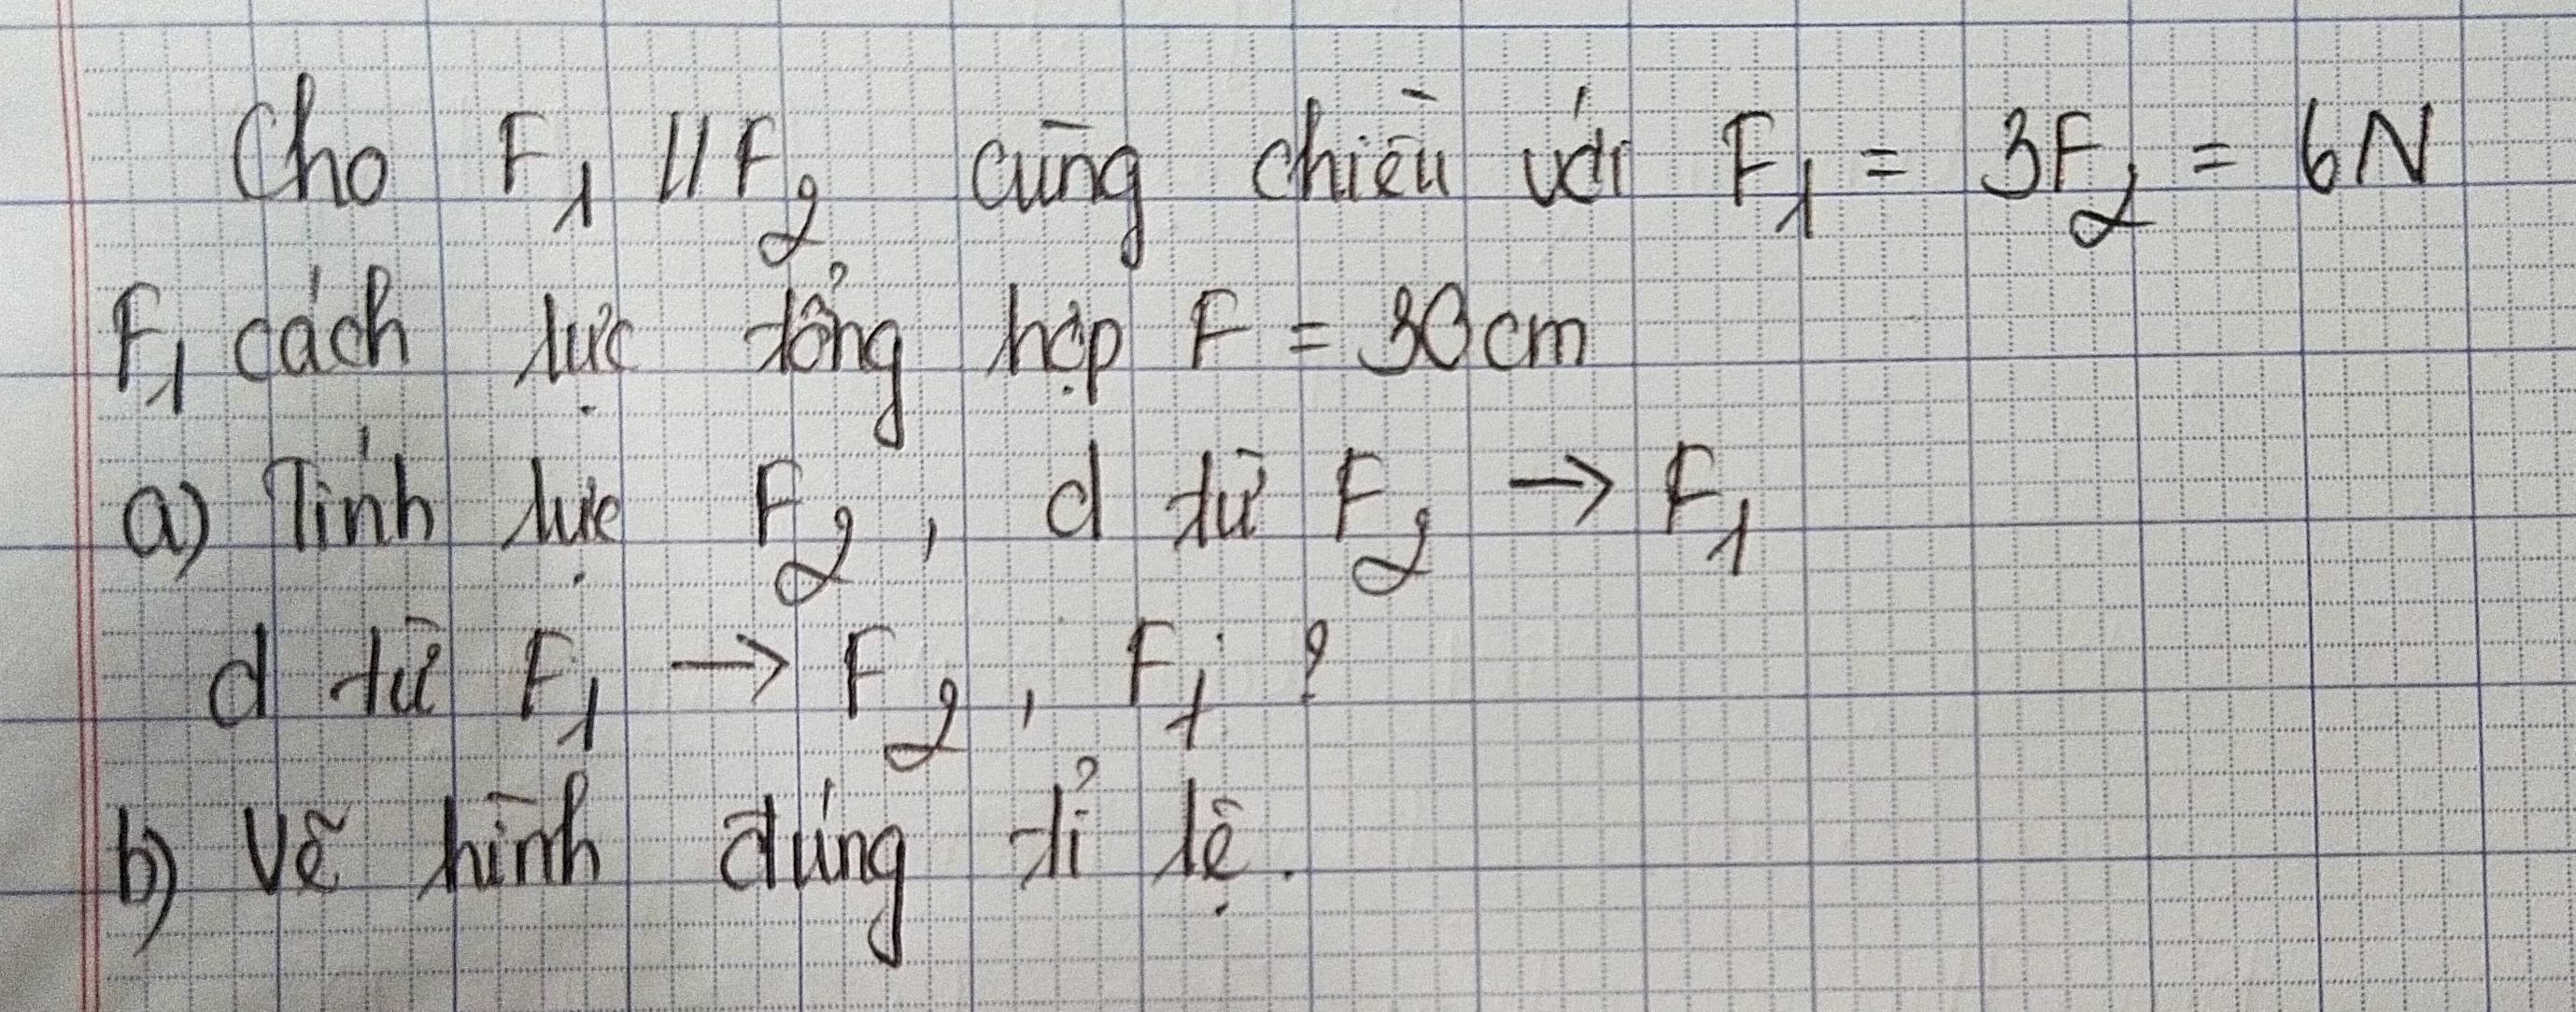 Cho F₁ // F₂ cùng chiều với F₁ = 3F₂ = 6N
F₁ cách lực tổng hợp F = 30cm
a) Tính lực F₂, d từ F₂ → F₁
d từ F₁ → F₂, F₁ ?
b) Vẽ hình đúng tỉ lệ.